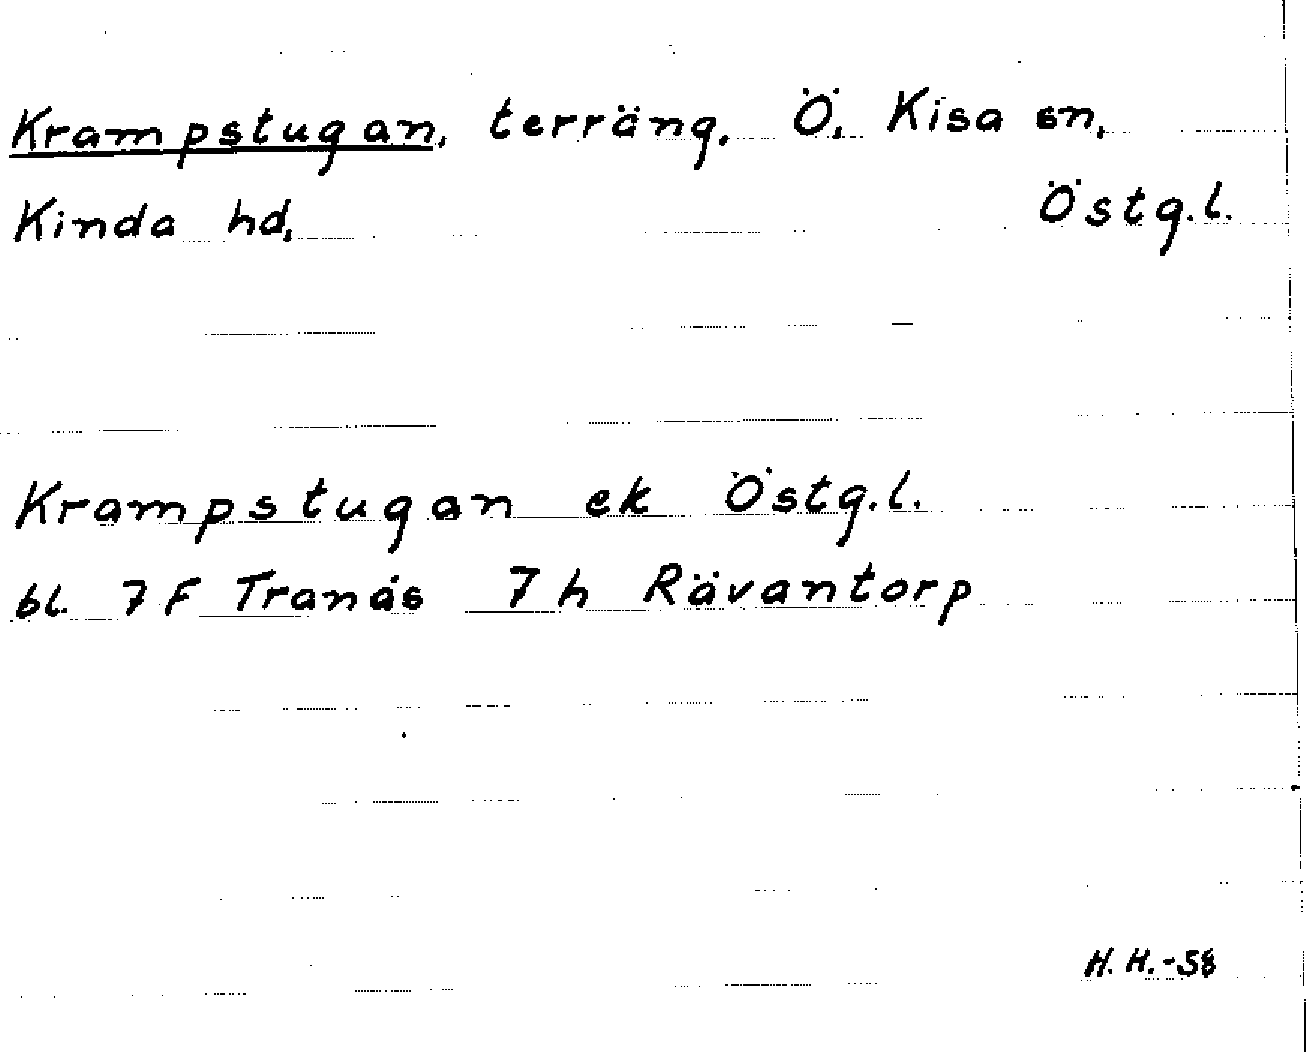 Krampstugan, terräng, Ö. Kisa sn,
Kinda hd, Östg.l.
Krampstugan ek Östg.l.
bl. 7F Tranås 7h Rävantorp
H. H.-58